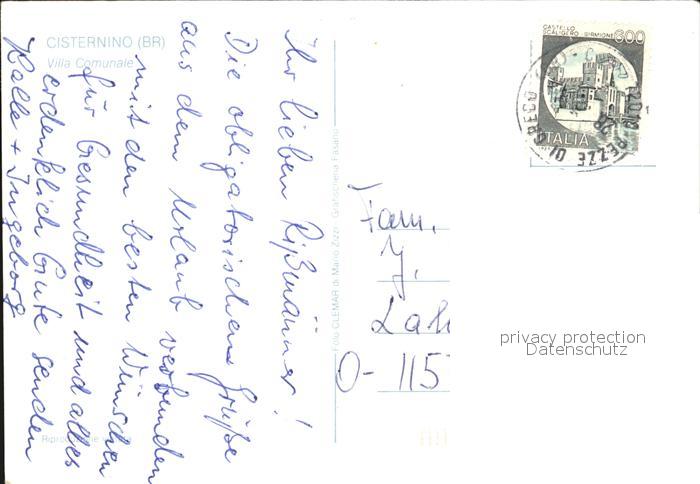 CISTERNINO (BR)
Villa Comunale
Ihr lieben Rißmänner!
Die obligatorischen Grüße
aus dem Urlaub verbunden
mit den besten Wünschen
für Gesundheit und alles
erdenklich Gute senden
Kalle + Ingeborg
Foto CLEMAR di Mario Zizzi - Graficschena Fasano
CASTELLO
SCALIGERO - SIRMIONE
600
ITALIA
PEZZE DI GRECO
Fam.
O-115
privacy protection
Datenschutz